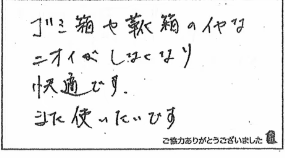 ゴミ箱や靴箱のイヤな
ニオイがしなくなり
快適です.
また使いたいです
ご協力ありがとうございました